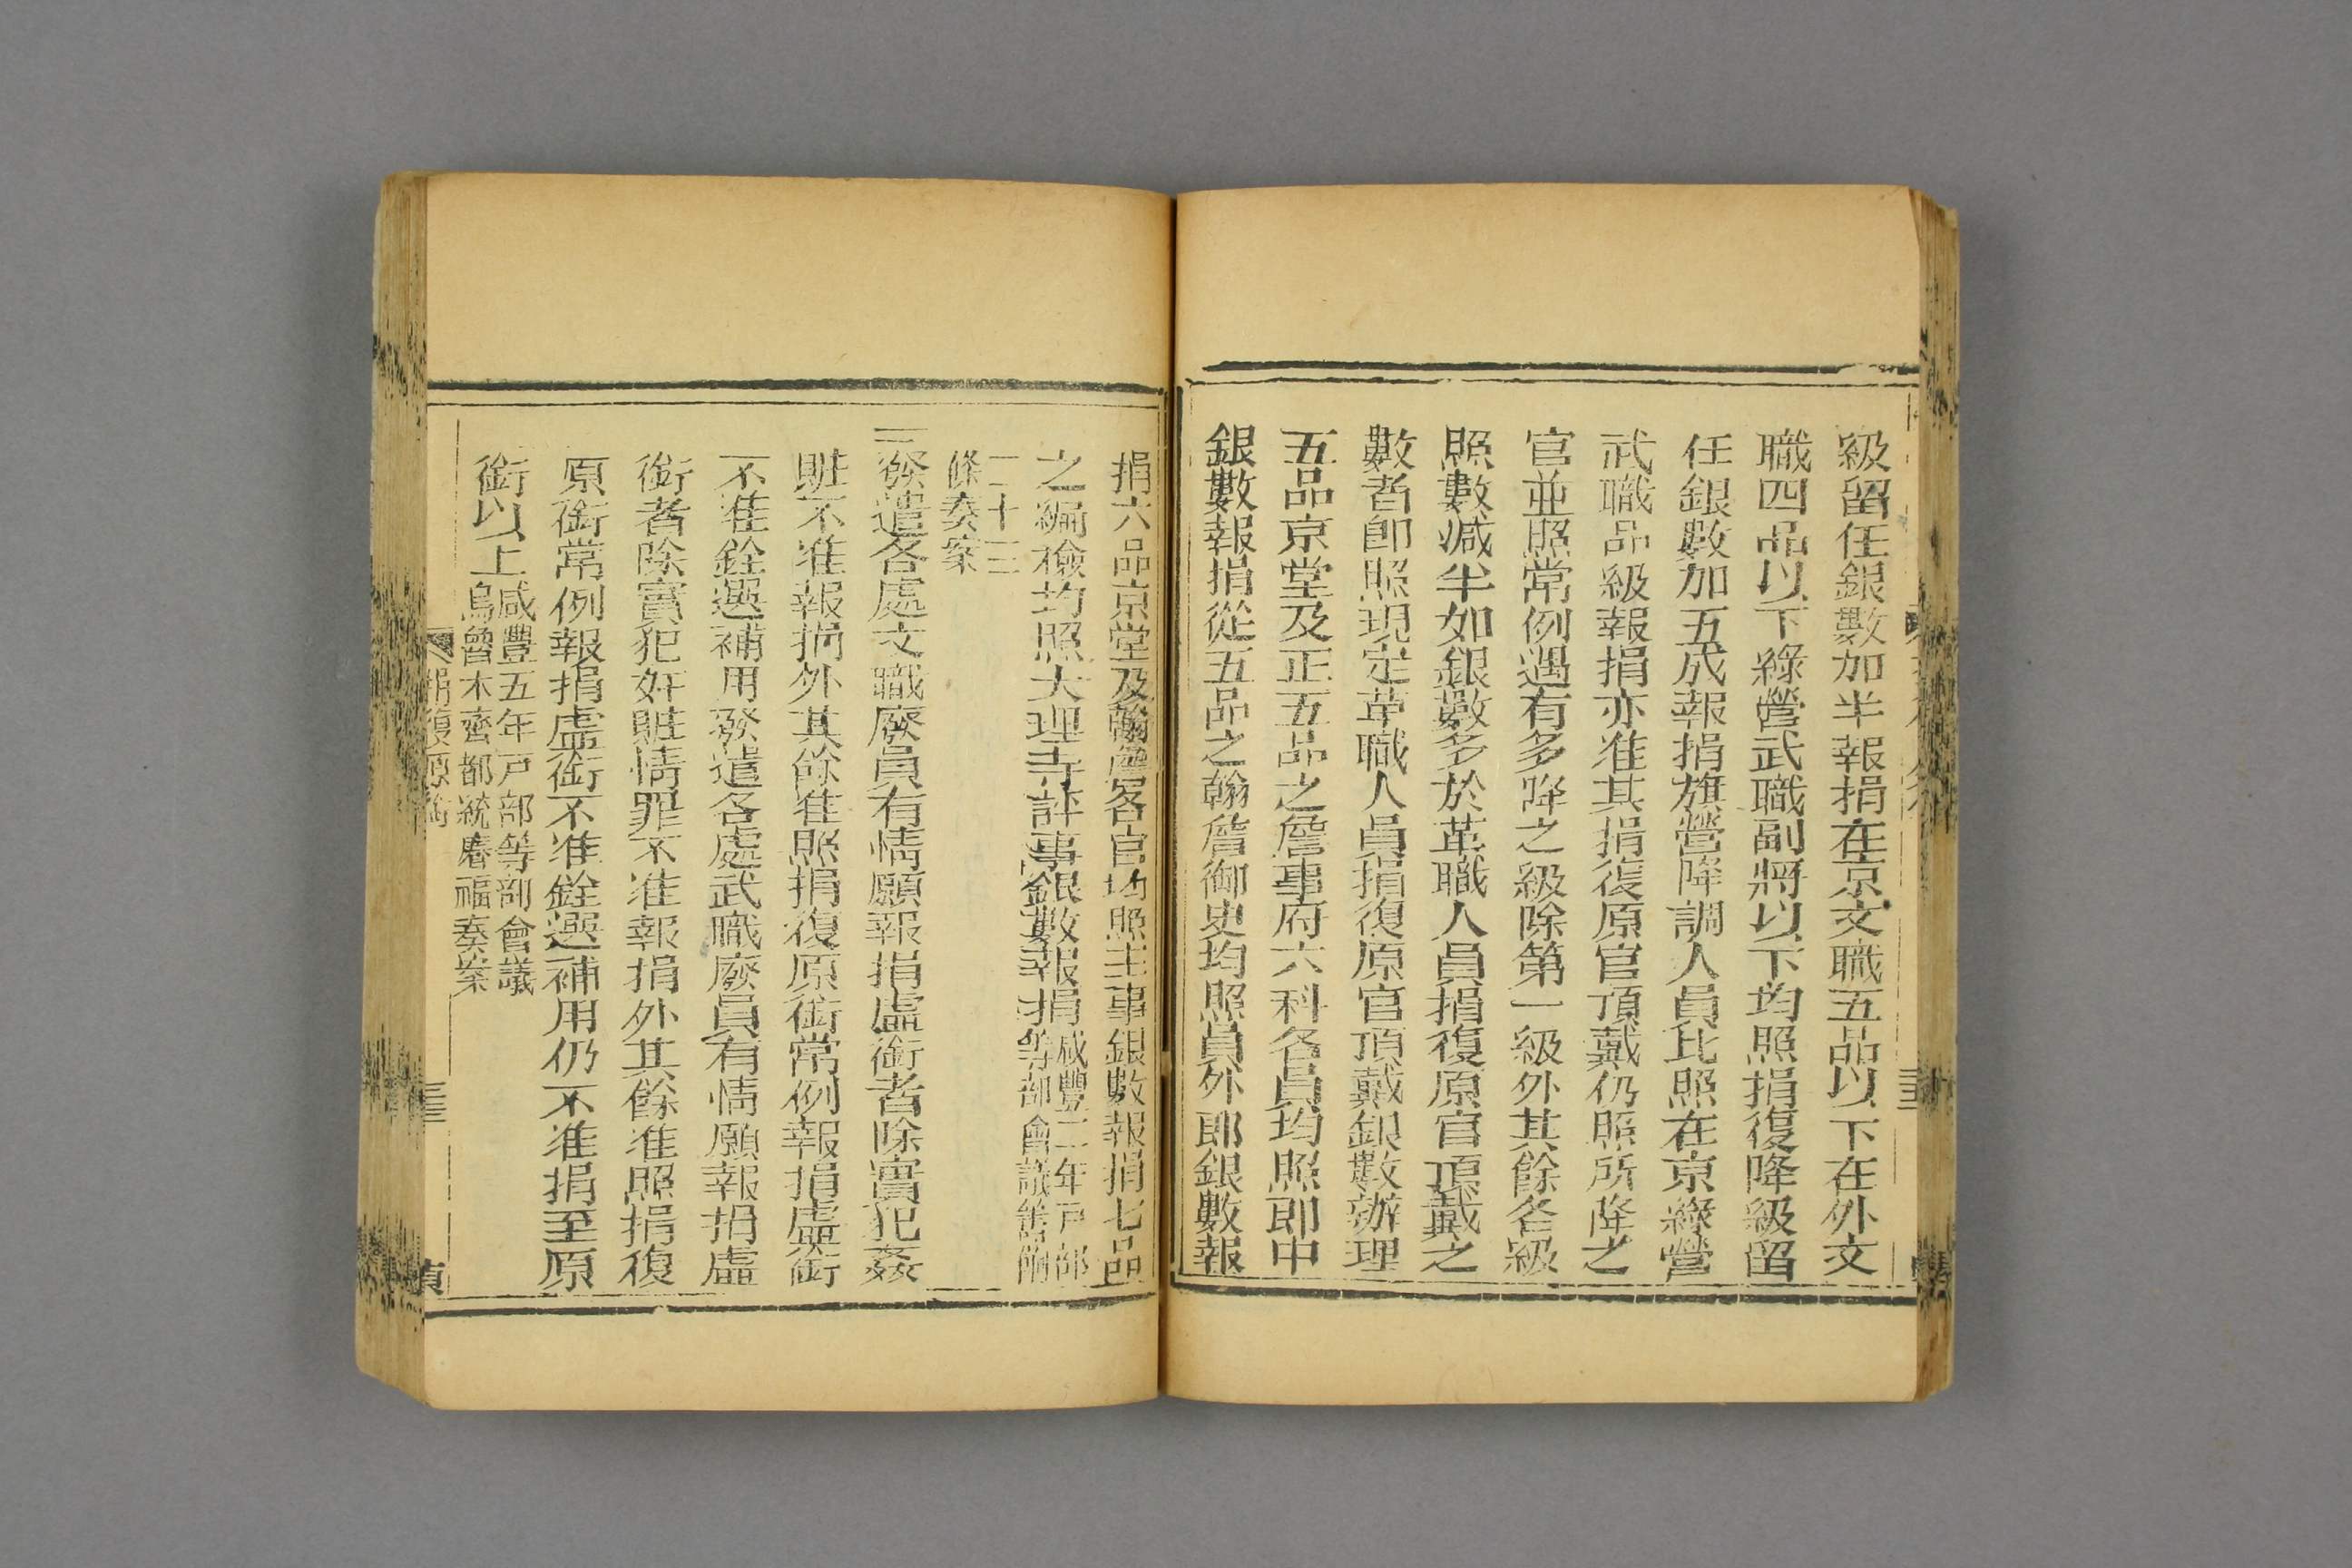 級留任銀數加半報捐在京文職五品以下在外文
職四品以下綠營武職副將以下均照捐復降級留
任銀數加五成報捐旗營降調人員比照在京綠營
武職品級報捐亦准其捐復原官頂戴仍照所降之
官並照常例遇有多降之級除第一級外其餘各級
照數減半如銀數多於革職人員捐復原官頂戴之
數者卽照現定革職人員捐復原官頂戴銀數辦理
五品京堂及正五品之詹事府六科各員均照郎中
銀數報捐從五品之翰詹御史均照員外郎銀數報
捐六品京堂及翰詹各官均照主事銀數報捐七品
之編檢均照大理寺評事銀數報捐咸豐二年戸部
等部會議籌餉
二十三
條奏案
一發遣各處文職廢員有情願報捐虛銜者除實犯姦
賍不准報捐外其餘准照捐復原銜常例報捐虛銜
不准銓選補用發遣各處武職廢員有情願報捐虛
銜者除實犯奸賍情罪不准報捐外其餘准照捐復
原銜常例報捐虛銜不准銓選補用仍不准捐至原
銜以上咸豐五年戸部等部會議
烏魯木齊都統賡福奏案
捐復原銜
三三